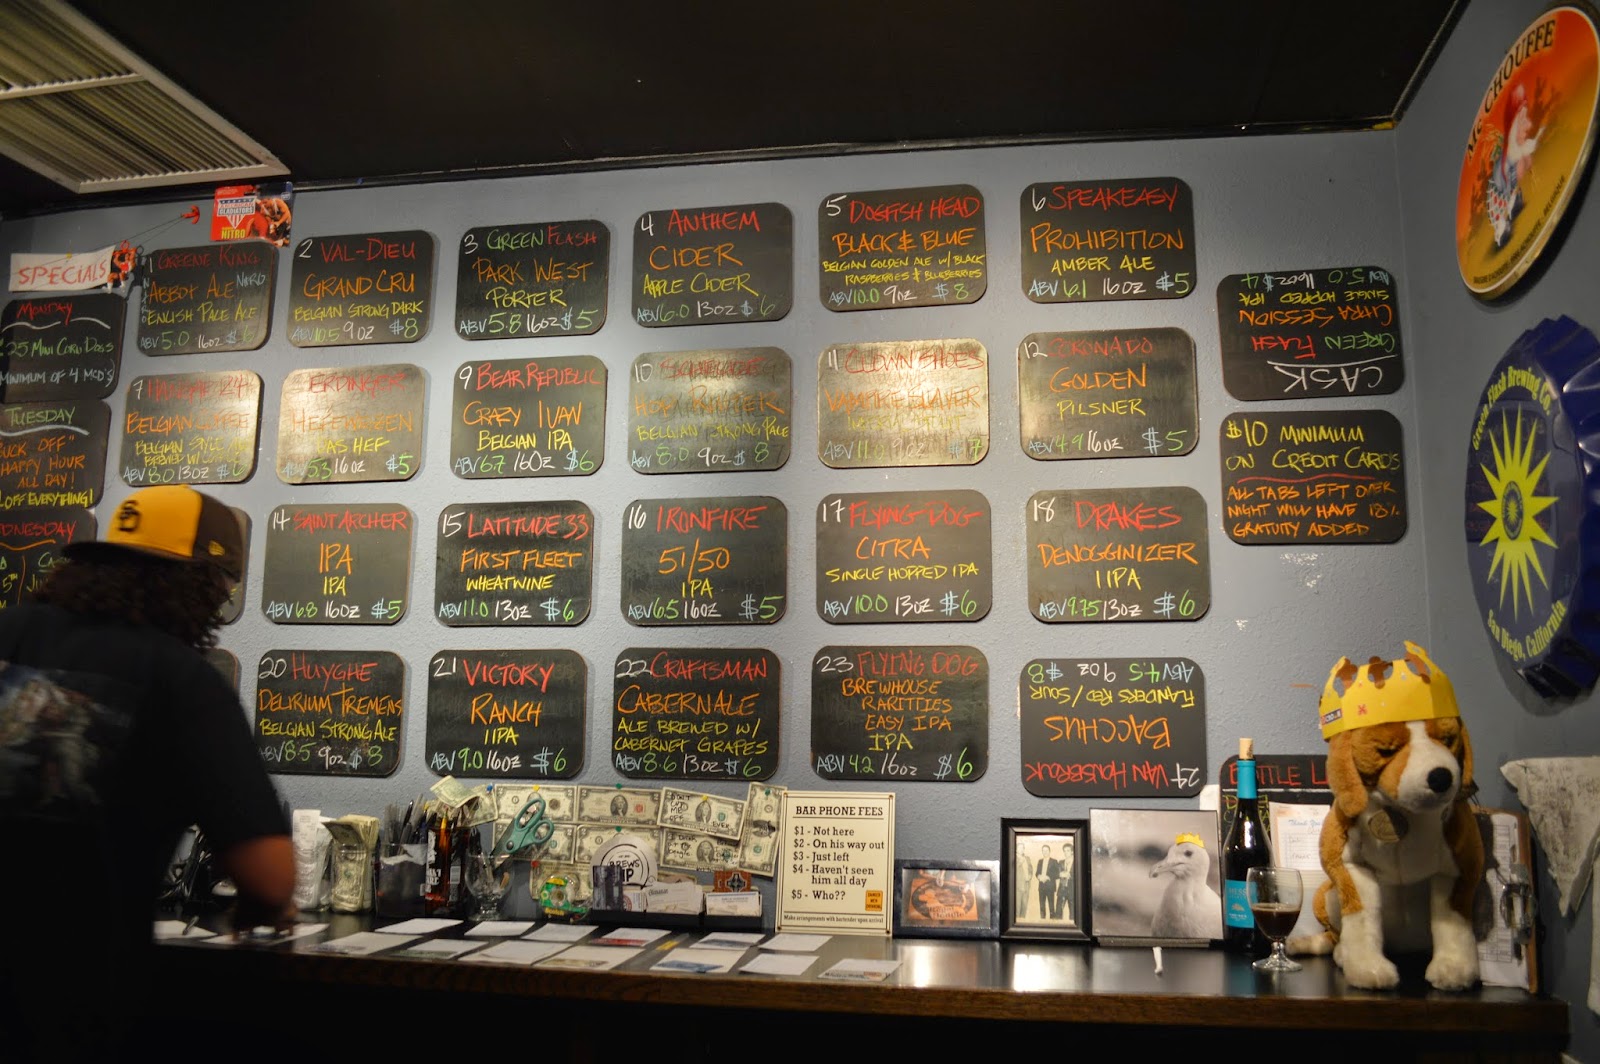 SPECIALS
MONDAY
.25 MINI CORN DOGS
MINIMUM OF 4 MCD'S
TUESDAY
UCK OFF"
HAPPY HOUR
ALL DAY!
OFF EVERYTHING!
DNESDAY
GLADIATORS
NITRO
1 GREENE KING
ABBOT ALE NITRO
ENLISH PALE ALE
ABV 5.0 16oz $6
2 VAL-DIEU
GRAND CRU
BELGIAN STRONG DARK
ABV 10.5 9oz $8
3 GREEN FLASH
PARK WEST
PORTER
ABV 5.8 16oz $5
4 ANTHEM
CIDER
APPLE CIDER
ABV 6.0 13oz $6
5 DOGFISH HEAD
BLACK & BLUE
BELGIAN GOLDEN ALE W/ BLACK
RASPBERRIES & BLUEBERRIES
ABV 10.0 9oz $8
6 SPEAKEASY
PROHIBITION
AMBER ALE
ABV 6.1 16oz $5
CASK
GREEN FLASH
CITRA SESSION
SINGLE HOPPED IPA
ABV 5.0 16oz $4
7
BELGIAN
ABV 8.0 13oz $6
ERDINGER
HEFEWEIZEN
HEF
5.3 16oz $5
9 BEAR REPUBLIC
CRAZY IVAN
BELGIAN IPA
ABV 6.7 16oz $6
10
BELGIAN STRONG PALE
ABV 8.0 9oz $8
11 CLOWN SHOES
VAMPIRE SLAYER
ABV 11.0 9oz $7
12 CORONADO
GOLDEN
PILSNER
ABV 4.9 16oz $5
$10 MINIMUM
ON CREDIT CARDS
ALL TABS LEFT OVER
NIGHT WILL HAVE 18%
GRATUITY ADDED
14 SAINT ARCHER
IPA
IPA
ABV 6.8 16oz $5
15 LATITUDE 33
FIRST FLEET
WHEATWINE
ABV 11.0 13oz $6
16 IRONFIRE
51/50
IPA
ABV 6.5 16oz $5
17 FLYING DOG
CITRA
SINGLE HOPPED IPA
ABV 10.0 13oz $6
18 DRAKES
DENOGGINIZER
IIPA
ABV 9.75 13oz $6
20 HUYGHE
DELIRIUM TREMENS
BELGIAN STRONG ALE
ABV 8.5 9oz $8
21 VICTORY
RANCH
IIPA
ABV 9.0 16oz $6
22 CRAFTSMAN
CABERNALE
ALE BREWED W/
CABERNET GRAPES
ABV 8.6 13oz $6
23 FLYING DOG
BREWHOUSE
RARITIES
EASY IPA
IPA
ABV 4.2 16oz $6
24 VAN HONSEBROUCK
BACCHUS
FLANDERS RED/SOUR
ABV 4.5 9oz $8
BAR PHONE FEES
$1 - Not here
$2 - On his way out
$3 - Just left
$4 - Haven't seen
him all day
$5 - Who??
Make arrangements with bartender upon arrival
BREWS
Mc CHOUFFE
Green Flash Brewing Co.
San Diego, California
SD